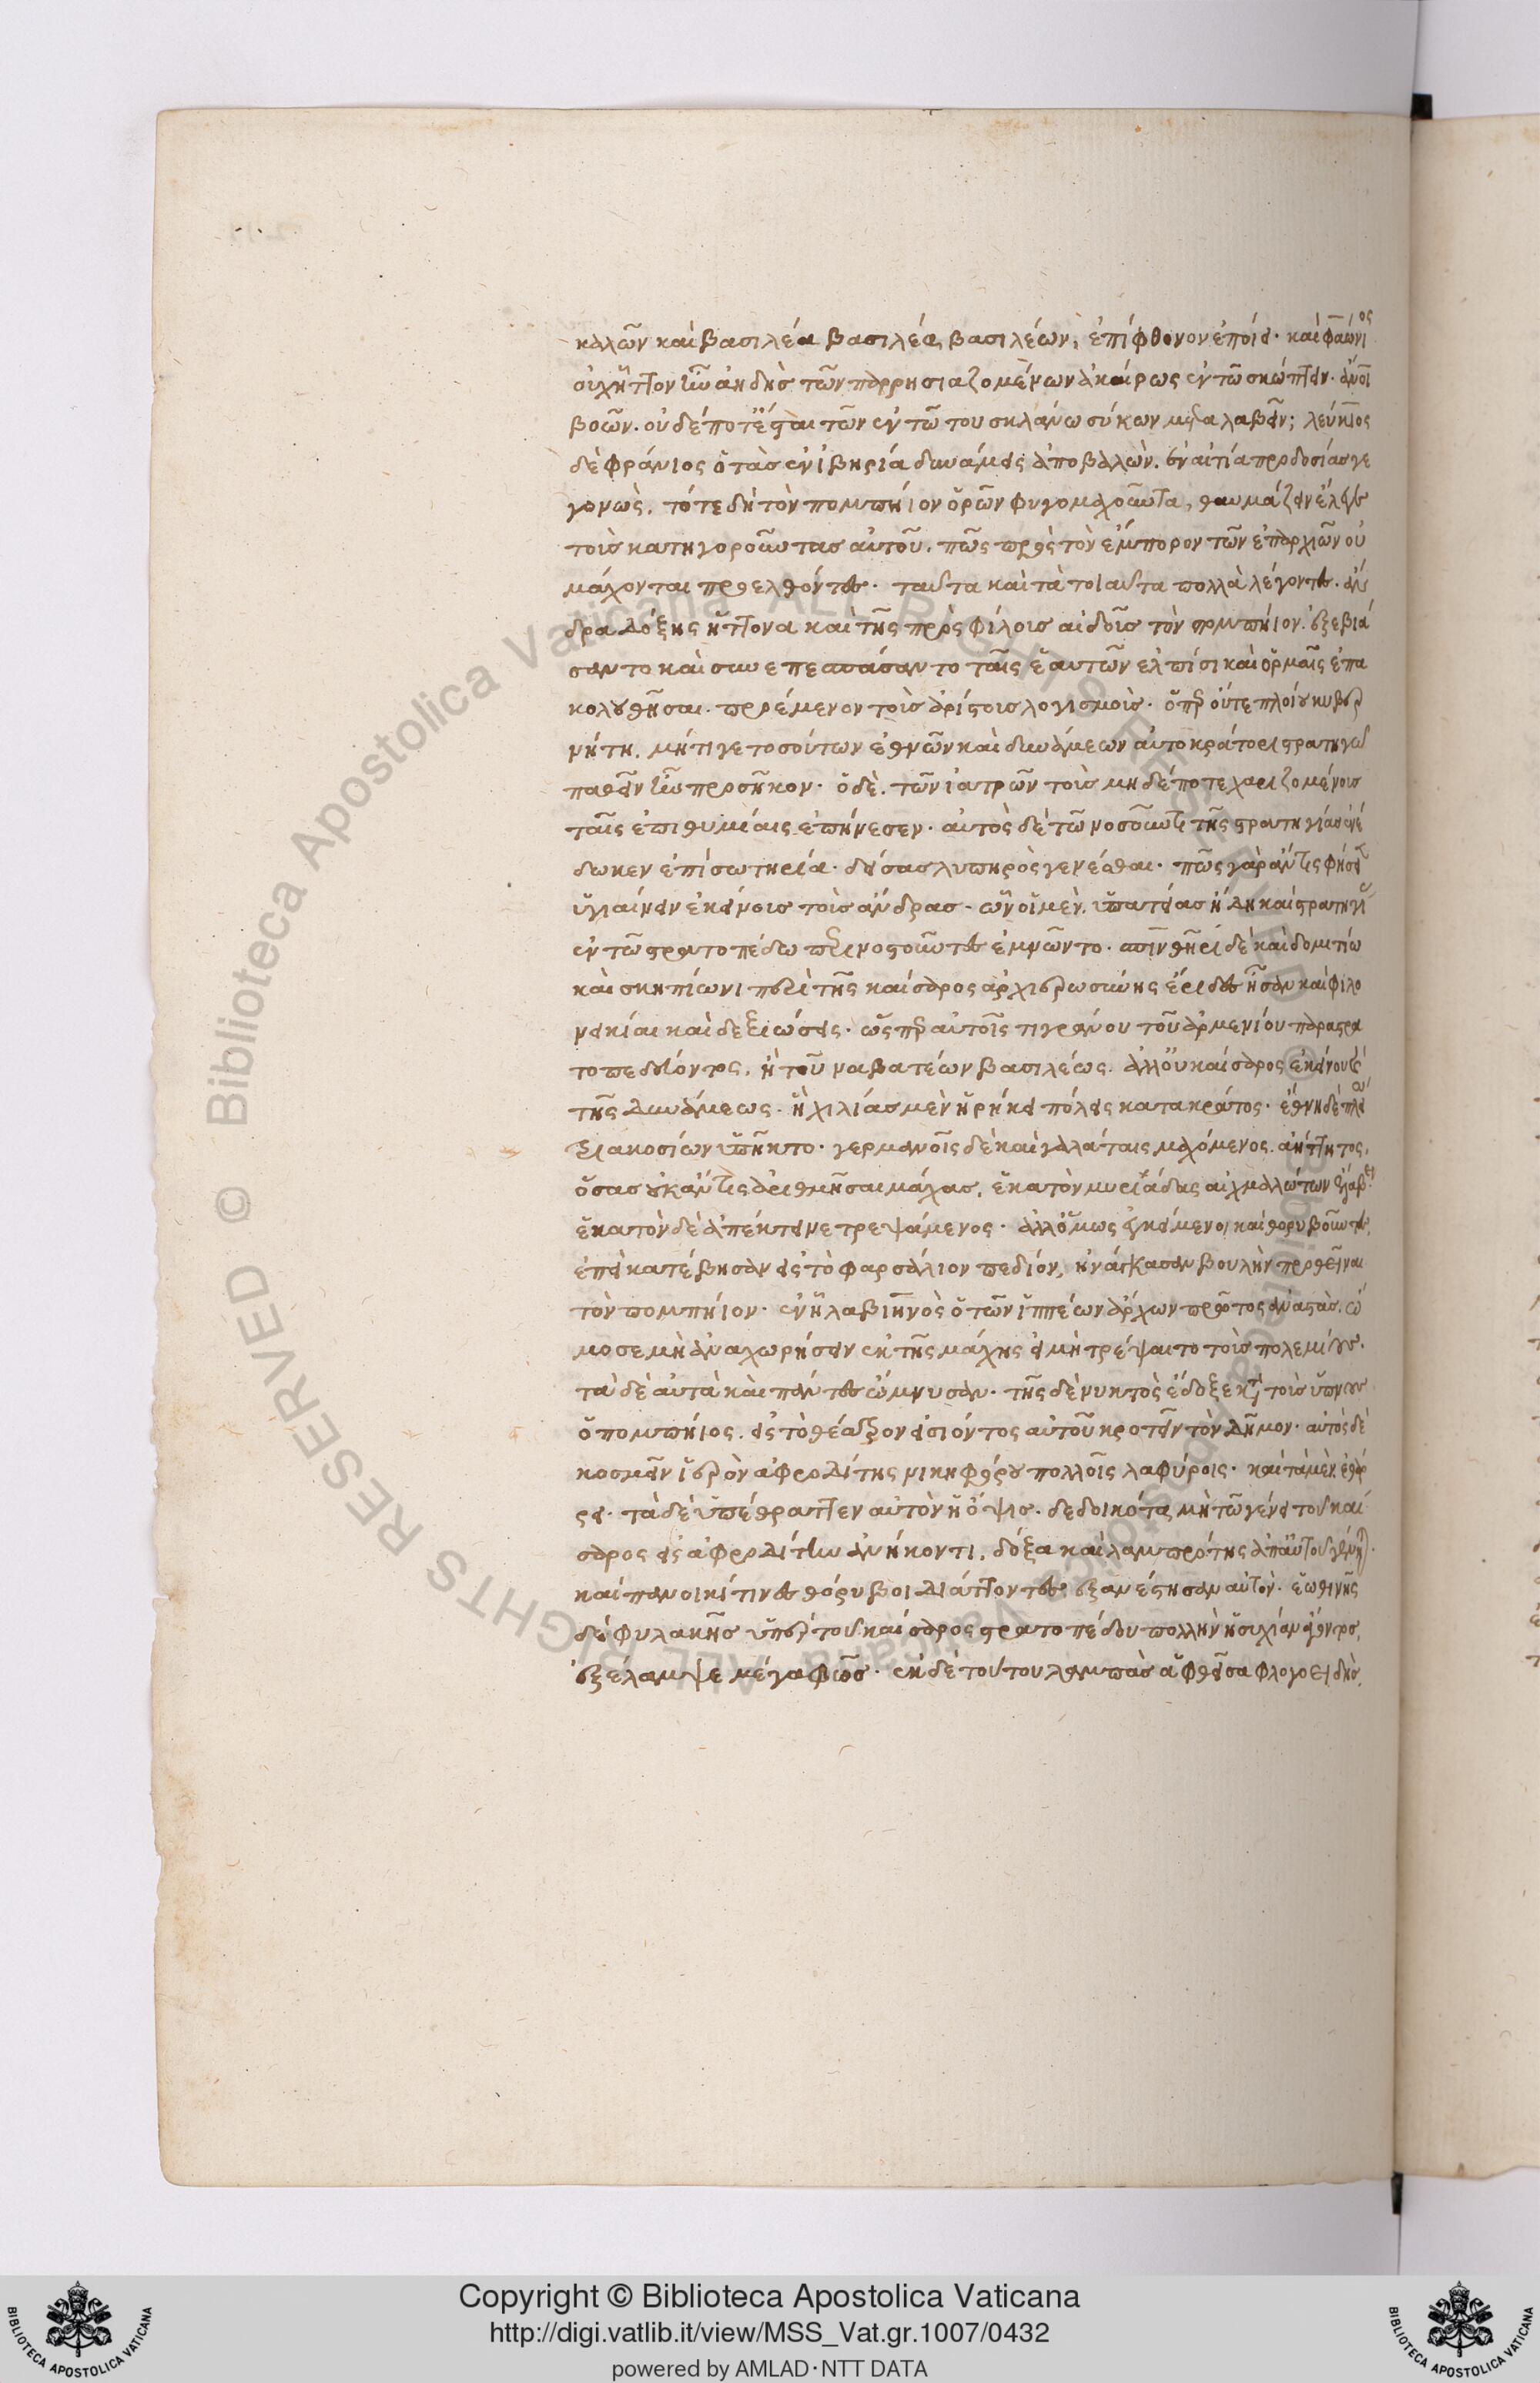 καλῶν καὶ βασιλέα βασιλέα βασιλέων, ἐπίφθονον ἐποίει· καὶ φαώνιος
οὐχ ἧττον ἦν ἀηδὴς τῶν παρρησιαζομένων ἀκαίρως ἐν τῷ σκώπτειν· ἄνοι
βοῶν. οὐδέποτε ἔσται τῶν ἐν τῷ τουσκλάνω σύκων μεταλαβεῖν; λεύκιος
δὲ φράνιος ὁ τὰς ἐν ἰβηρία δυνάμεις ἀποβαλὼν. ἐν αἰτία προδοσίας γε
γονὼς. τότε δὴ τὸν πομπήιον ὁρῶν φυγομαχοῦντα, θαυμάζειν ἔλεγε
τοὺς κατηγοροῦντας αὐτοῦ. πῶς πρὸς τὸν ἔμπορον τῶν ἐπαρχιῶν οὐ
μάχονται προελθόντες· ταῦτα καὶ τὰ τοιαῦτα πολλὰ λέγοντες. ἄν
δρα δόξης ἥττονα καὶ τῆς πρὸς φίλους αἰδοῦς τὸν πομπήιον. ἐξεβιά
σαντο καὶ συνεπεσπάσαντο ταῖς ἑαυτῶν ἐλπίσι καὶ ὁρμαῖς ἐπα
κολουθῆσαι. προέμενον τοὺς ἀρίστους λογισμοὺς· ὅπερ οὔτε πλοίου κυβερ
νήτη. μήτι γε τοσούτων ἐθνῶν καὶ δυνάμεων αὐτοκράτορι στρατηγῷ
παθεῖν ἦν προσῆκον· ὁ δὲ. τῶν ἰατρῶν τοὺς μηδέποτε χαριζομένους
ταῖς ἐπιθυμίαις ἐπήνεσεν· αὐτὸς δὲ τῷ νοσοῦντι τῆς στρατηγίας ἐνέ
δωκεν ἐπὶ σωτηρία· δείσας λυπηρὸς γενέσθαι· πῶς γὰρ ἄν τις φήσει
ὑγιαίνειν ἐκείνους τοὺς ἄνδρας· ὧν οἱ μὲν. ὑπατείας ἤδη καὶ στρατηγί
ἐν τῷ στρατοπέδω περινοστοῦντες ἐμνῶντο. σπινθῆρι δὲ καὶ δομιτίω
καὶ σκηπίωνι περὶ τῆς καίσαρος ἀρχιερωσύνης ἔριδες ἦσαν καὶ φιλο
νεικίαι καὶ δεξιώσεις· ὥσπερ αὐτοῖς τιγράνου τοῦ ἀρμενίου παραστρα
τοπεδεύοντος, ἢ τοῦ ναβατέων βασιλέως. ἀλλ' οὐ καίσαρος ἐκείνου καὶ
τῆς δυνάμεως. ᾗ χιλίας μὲν ᾑρήκει πόλεις κατα κράτος· ἔθνη δὲ πλεί
τριακοσίων ὑπῆκτο· γερμανοῖς δὲ καὶ γαλάταις μαχόμενος. ἀήττητος,
ὅσας οὐκ ἄν τις ἀριθμῆσαι μάχας. ἑκατὸν μυριάδας αἰχμαλώτων ἔλαβεν
ἑκατὸν δὲ ἀπέκτεινε τρεψάμενος. ἀλλ' ὅμως ἐγκείμενοι καὶ θορυβοῦντες,
ἐπεὶ κατέβησαν εἰς τὸ φαρσάλιον πεδίον, ἠνάγκασαν βουλὴν προθεῖναι
τὸν πομπήιον· ἐν ᾗ λαβιηνὸς ὁ τῶν ἱππέων ἄρχων πρῶτος ἀναστὰς. ὤ
μοσε μὴ ἀναχωρήσειν ἐκ τῆς μάχης εἰ μὴ τρέψαιτο τοὺς πολεμίους.
τὰ δὲ αὐτὰ καὶ πάντες ὤμνυσαν. τῆς δὲ νυκτὸς ἔδοξε κατὰ τοὺς ὕπνους
ὁ πομπήιος. εἰς τὸ θέατρον εἰσιόντος αὐτοῦ κροτεῖν τὸν δῆμον· αὐτὸς δὲ
κοσμεῖν ἱερὸν ἀφροδίτης νικηφόρου πολλοῖς λαφύροις· καὶ τὰ μὲν. ἐθάρ
ρει· τὰ δὲ ὑπέθραττεν αὐτὸν ἡ ὄψις. δεδοικότα μὴ τῷ γένει τοῦ καί
σαρος εἰς ἀφροδίτην ἀνήκοντι. δόξα καὶ λαμπρότης ἀπ' αὐτοῦ γένηται.
καὶ πανικοί τινες θόρυβοι διάττοντες ἐξανέστησαν αὐτὸν· ἑωθινῆς
δὲ φυλακῆς ὑπὲρ τοῦ καίσαρος στρατοπέδου πολλὴν ἡσυχίαν ἄγοντος.
ἐξέλαμψε μέγα φῶς· ἐκ δὲ τούτου λαμπὰς ἀφθεῖσα φλογοειδὴς.
© Biblioteca Apostolica Vaticana ALL RIGHTS RESERVED © Biblioteca Apostolica Vaticana ALL RIGHTS RESERVED
BIBLIOTECA APOSTOLICA VATICANA
Copyright © Biblioteca Apostolica Vaticana
http://digi.vatlib.it/view/MSS_Vat.gr.1007/0432
powered by AMLAD·NTT DATA
BIBLIOTECA APOSTOLICA VATICANA